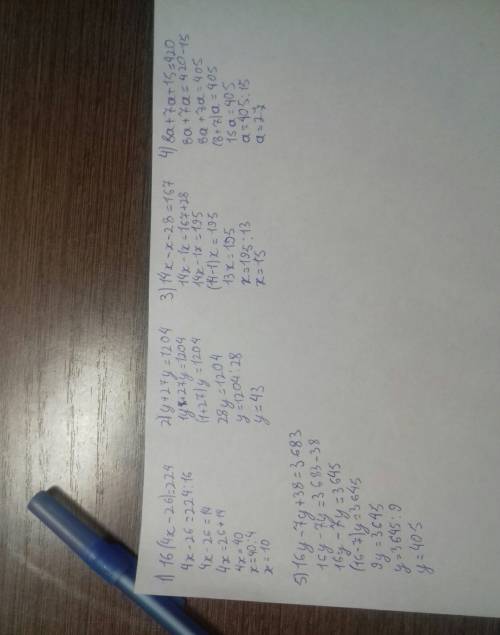 1) 16(4x-26)=224
4x-26=224:16
4x-26=14
4x=26+14
4x=40
x=40:4
x=10
2) y+27y=1204
1y+27y=1204
(1+27)y=1204
28y=1204
y=1204:28
y=43
3) 14x-x-28=167
14x-1x=167+28
14x-1x=195
(14-1)x=195
13x=195
x=195:13
x=15
4) 8a+7a+15=420
8a+7a=420-15
8a+7a=405
(8+7)a=405
15a=405
a=405:15
a=27
5) 16y-7y+38=3683
16y-7y=3683-38
16y-7y=3645
(16-7)y=3645
9y=3645
y=3645:9
y=405